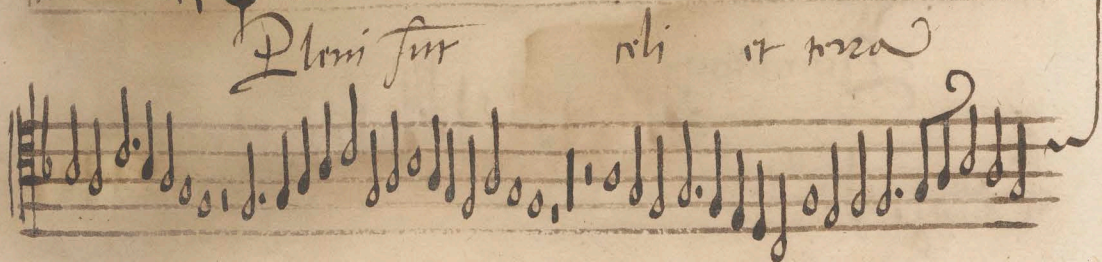 Pleni sūt celi et terra